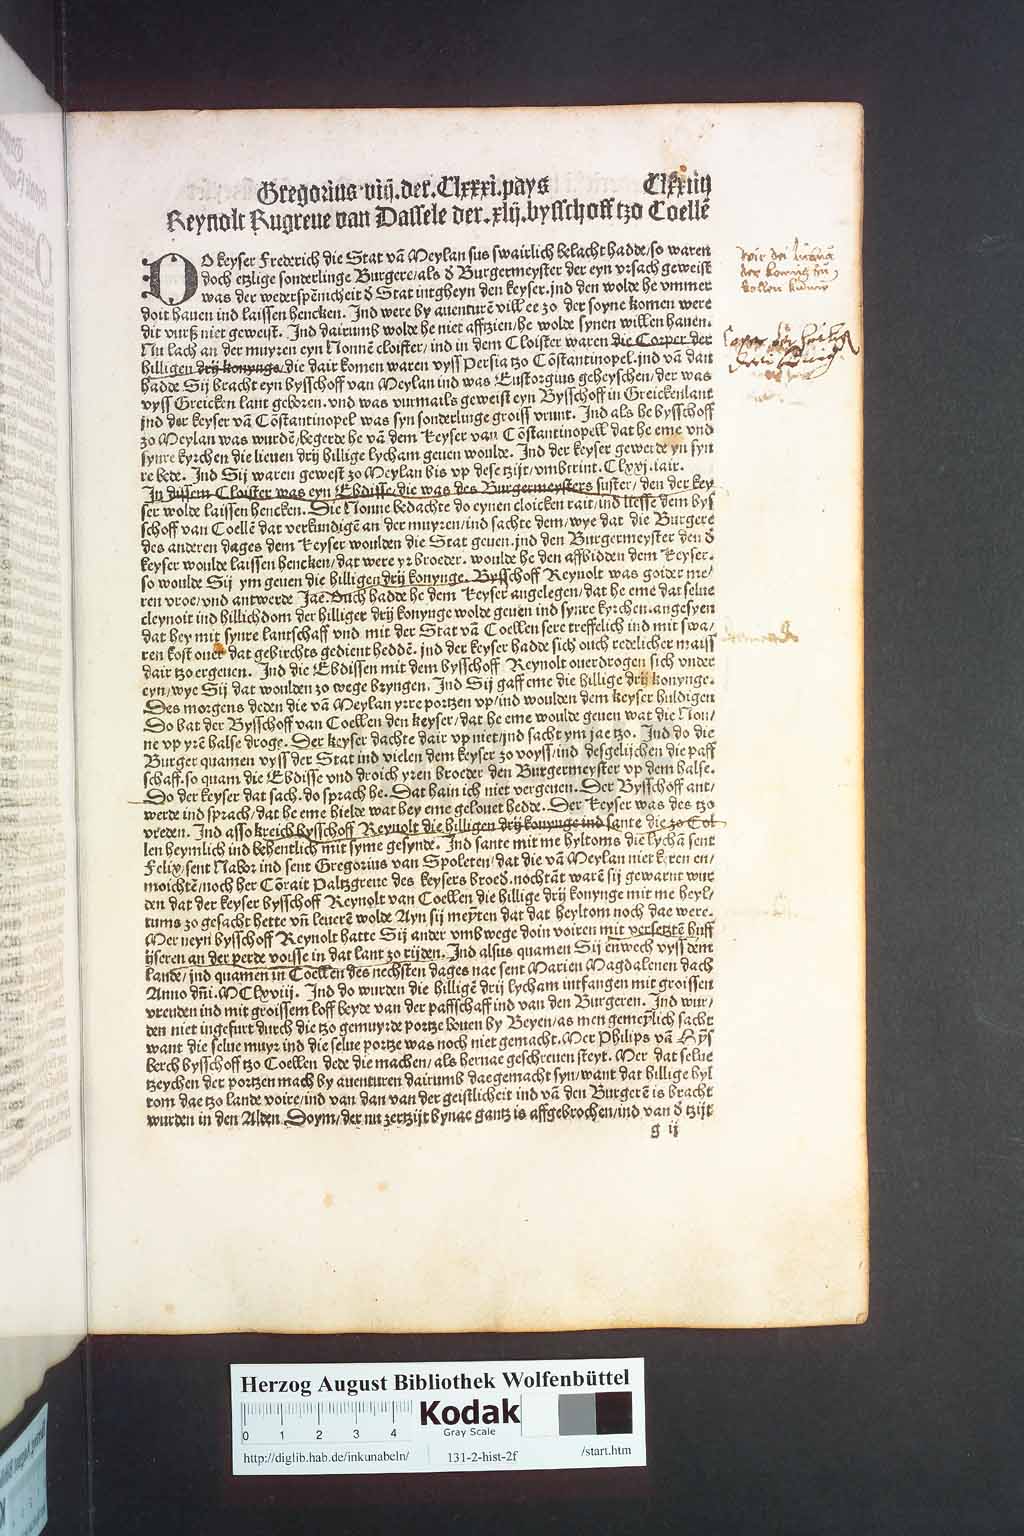 Gregorius viij. der. Clxxxi. pays Clxxiiij
Reynolt Rugreue van Dassele der. xlij. bysschoff tzo Coellē
DO keyser Frederich die Stat vā Meylan sus swairlich belacht hadde/so waren
doch etzlige sonderlinge Burgere/als d̄ Burgermeyster der eyn vrsach geweist
was der wederspēnicheit d̄ Stat intgheyn den keyser. jnd den wolde he vmmer
doit hauen ind laissen hencken. Ind were by auenturē vill er zo der soyne komen were
dit vurß niet geweist. Ind dairumb wolde he niet afftzien/he wolde synen willen hauen.
Nu lach an der muyren eyn Nonnē cloister/ind in dem Cloister waren die Corper der
hilligen drij konynge/die dair komen waren vyss Persia tzo Cōstantinopel. jnd vā dan
hadde Sij bracht eyn bysschoff van Meylan ind was Eustorgius geheyschen/der was
vyss Greicken lant geboren. vnd was vurmails geweist eyn Bysschoff in Greickenlant
jnd der keyser vā Cōstantinopel was syn sonderlinge groiss vrunt. Ind als he bysschoff
zo Meylan was wurdē/begerde he vā dem keyser van Cōstantinopell dat he eme vnd
synre kyrchen die lieuen drij hillige lycham geuen woulde. Ind der keyser gewerde yn syn
re bede. Ind Sij waren gewest zo Meylan bis vp dese tzijt/vmbtrint. Clxxj. iair.
In dissem Cloister was eyn Ebdisse/die was des Burgermeysters suster/den der key
ser wolde laissen hencken. Die Nonne bedachte do eynen cloicken rait/ind liesse dem bys
schoff van Coellē dat verkundigē an der muyren/ind sachte dem/wye dat die Burgere
des anderen dages dem keyser woulden die Stat geuen. jnd den Burgermeyster den d̄
keyser woulde laissen hencken/dat were yr broeder. woulde he den affbidden dem keyser.
so woulde Sij ym geuen die hilligen drij konynge. Bysschoff Reynolt was goider me/
ren vroe/vnd antwerde Jae. Ouch hadde he dem keyser angelegen/dat he eme dat selue
cleynoit ind hillichdom der hilliger drij konynge wolde geuen ind synre kyrchen. angesyen
dat hey mit synre lantschaff vnd mit der Stat vā Coellen sere treffelich ind mit swa/
ren kost ouer dat gebirchts gedient heddē. jnd der keyser hadde sich ouch redelicher maiss
dair tzo ergeuen. Ind die Ebdissen mit dem bysschoff Reynolt ouerdrogen sich vnder
eyn/wye Sij dat woulden zo wege bryngen. Ind Sij gaff eme die hillige drij konynge.
Des morgens deden die vā Meylan yrre portzen vp/ind woulden dem keyser huldigen
Do bat der Bysschoff van Coellen den keyser/dat he eme woulde geuen wat die Non/
ne vp yrē halse droge. Der keyser dachte dair vp niet/jnd sacht ym jae tzo. Ind do die
Burger quamen vyss der Stat ind vielen dem keyser zo voyss/ind desgelijchen die paff
schaff. so quam die Ebdisse vnd droich yren broeder den Burgermeyster vp dem halse.
Do der keyser dat sach. do sprach he. Dat hain ich niet vergeuen. Der Bysschoff ant/
werde ind sprach/dat he eme hielde wat hey eme gelouet hedde. Der keyser was des tzo
vreden. Ind asso kreich bysschoff Reynolt die hilligen drij konynge ind sante die zo Col
len heymlich ind behentlich mit syme gesynde. Ind sante mit me hyltoms die lychā sent
Felix/sent Nabor ind sent Gregorius van Spoleten/dat die vā Meylan niet keren en/
moichtē/noch her Cōrait Paltzgreue des keysers broed. nochtāt warē sij gewarnt wur
den dat der keyser bysschoff Reynolt van Coellen die hillige drij konynge mit me heyl/
tums zo gesacht hette vn̄ leuerē wolde Ayn sij meyten dat dat heyltom noch dae were.
Mer neyn bysschoff Reynolt hatte Sij ander vmbwege doin voiren mit versetztē huff
yseren an der perde voisse in dat lant zo rijden. Ind alsus quamen Sij enwech vyss dem
lande/jnd quamen in Coellen des nechsten dages nae sent Marien Magdalenen dach
Anno dn̄i. MClxviij. Ind do wurden die hilligē drij lycham intfangen mit groissen
vreuden ind mit groissem loff beyde van der paffschaff ind van den Burgeren. Ind wur/
den niet ingefurt durch die tzo gemuyrde portze bouen by Beyen/as men gemeylich sacht
want die selue muyr ind die selue portze was noch niet gemacht. Mer Philips vā Hys
berch bysschoff tzo Coellen dede die machen/als hernae geschreuen steyt. Mer dat selue
tzeychen der portzen mach by auenturen dairumb dae gemacht syn/want dat hillige hyl
tom dae tzo lande voire/ind van dan van der geistlicheit ind vā den Burgerē is bracht
wurden in den Alden Doym/der nu zertzijt bynae gantz is affgebrochen/ind van d̄ tzijt
g ij
Herzog August Bibliothek Wolfenbüttel
0 1 2 3 4
Kodak
Gray Scale
http://diglib.hab.de/inkunabeln/ 131-2-hist-2f /start.htm